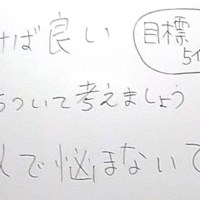 けば良い
目標
5
ついて考えましょう
で悩まないで